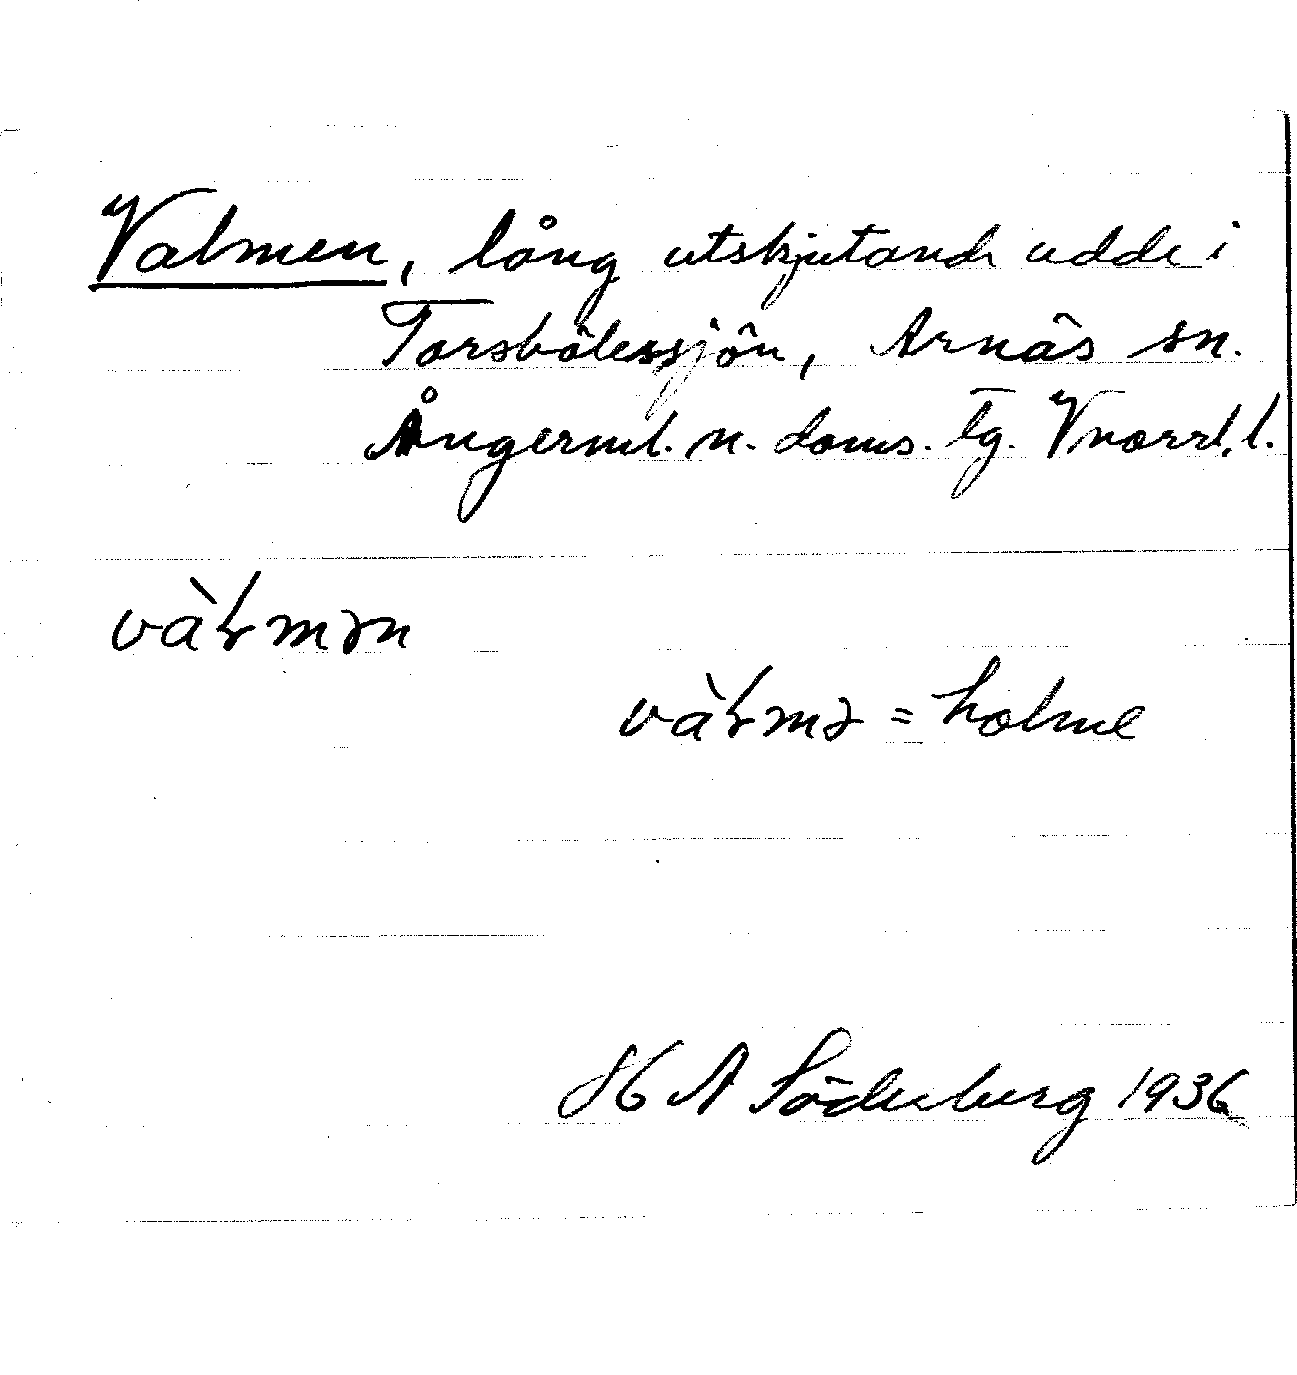 Valmen, lång utskjutande udde i
Torsbölessjön, Arnäs sn.
Ångerml. n. doms. tg. Vnorrl. l.
vàɫmən
vàɫmə = holme
H A Söderberg 1936